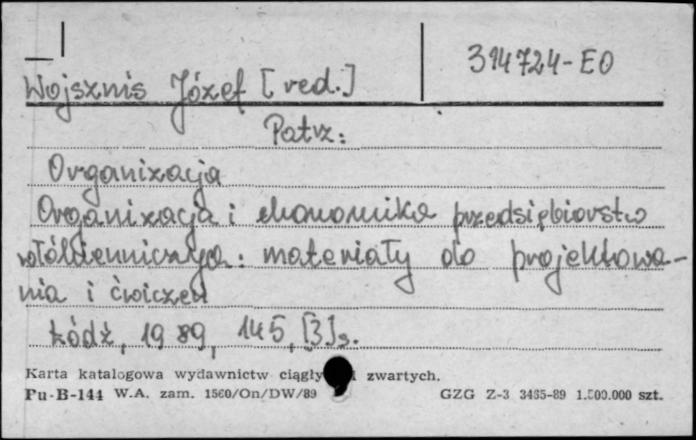 Wojsznis Józef [red.]
314724-EO
Patrz:
Organizacja
Organizacja i ekonomika przedsiębiorstw
włókienniczych: materiały do projektowa-
nia i ćwiczeń
Łódź, 1989, 145, [3]s.
Karta katalogowa wydawnictw zwartych.
Pu-B-144 W.A. zam. 1560/On/DW/89 GZG Z-3 3465-89 1.500.000 szt.